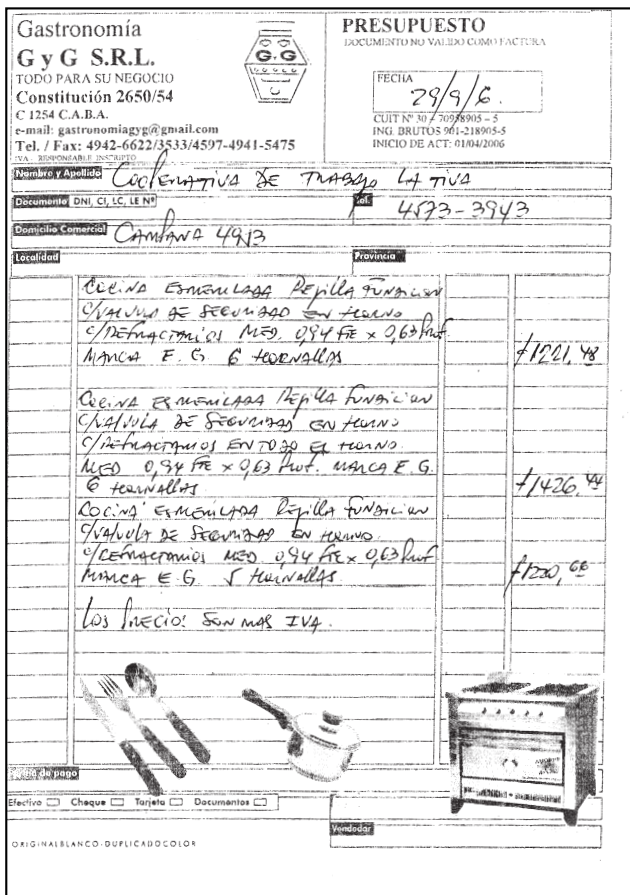 Gastronomía
G y G S.R.L.
TODO PARA SU NEGOCIO
Constitución 2650/54
C 1254 C.A.B.A.
e-mail: gastronomiagyg@gmail.com
Tel. / Fax: 4942-6622/3533/4597-4941-5475
IVA - RESPONSABLE INSCRIPTO
G y G
PRESUPUESTO
DOCUMENTO NO VALIDO COMO FACTURA
FECHA
29/9/6.
CUIT Nº 30 - 70958905 - 5
ING. BRUTOS 901-218905-5
INICIO DE ACT: 01/04/2006
Nombre y Apellido Cooperativa DE TRABAJO LA TIVA
Documento DNI, CI, LC, LE Nº Tel. 4573-3943
Domicilio Comercial CAMPANA 4913
Localidad Provincia
COCINA ESMERILADA Rejilla FUNDICION
C/VALVULA DE SEGURIDAD EN HORNO
C/REFRACTARIOS MED. 0,94 FTE x 0,63 Prof.
MARCA E. G. 6 HORNALLAS $1221,48
COCINA ESMERILADA Rejilla FUNDICION
C/VALVULA DE SEGURIDAD EN HORNO
C/REFRACTARIOS EN TODO EL HORNO.
MED 0,94 FTE x 0,63 Prof. MARCA E. G.
6 HORNALLAS $1426,44
COCINA ESMERILADA Rejilla FUNDICION
C/VALVULA DE SEGURIDAD EN HORNO.
C/REFRACTARIOS MED. 0,94 FTE x 0,63 Prof
MARCA E. G. 5 HORNALLAS. $1220,66
LOS PRECIO! SON MAS IVA.
Forma de pago
Efectivo Cheque Tarjeta Documentos
Vendedor
ORIGINALBLANCO-DUPLICADOCOLOR